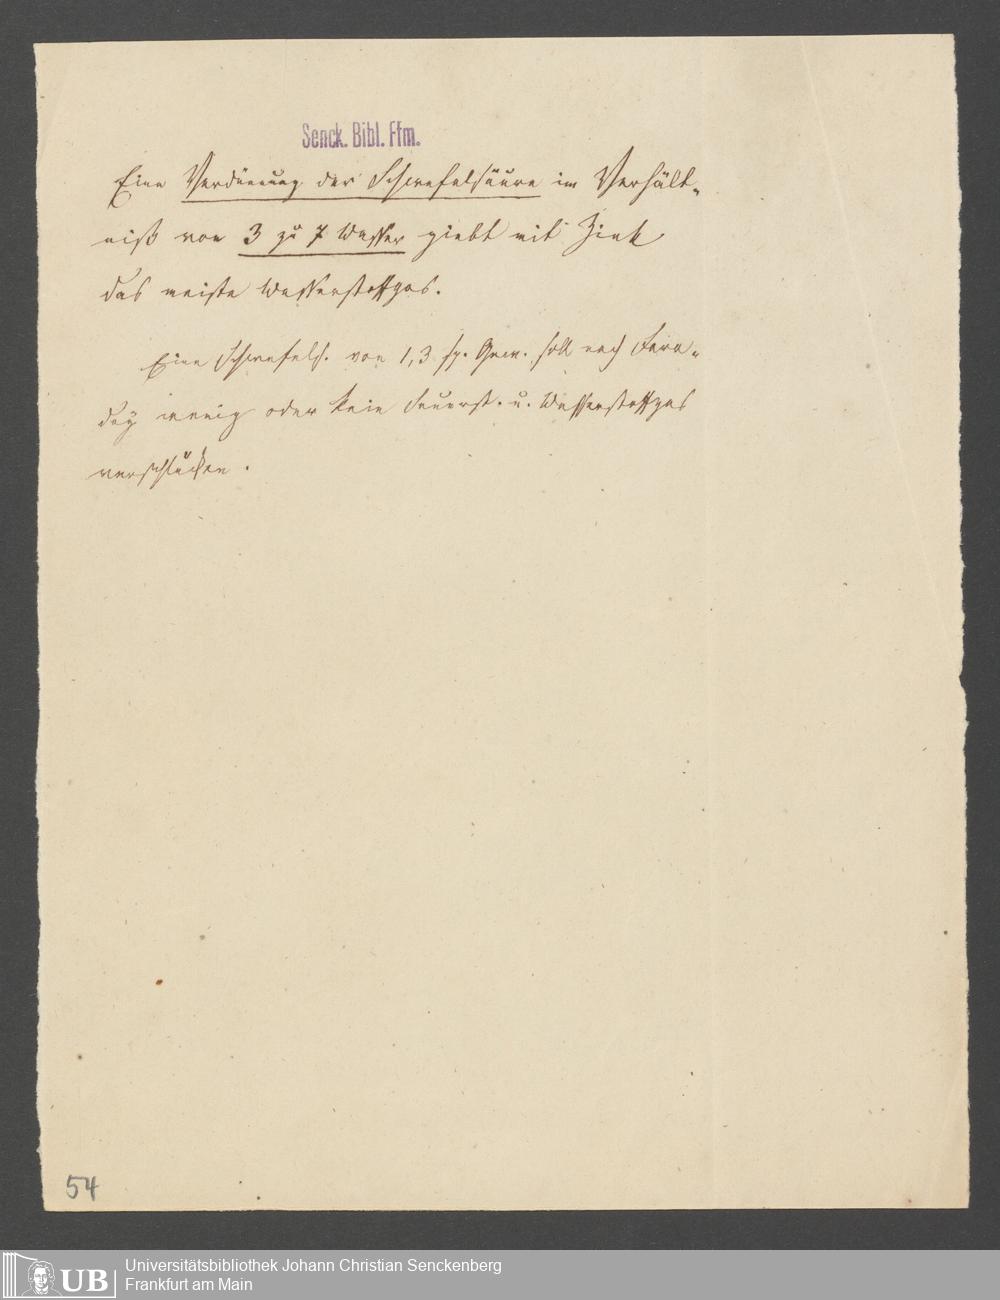 Senck. Bibl. Ffm.
Eine Verdünnung der Schwefelsäure im Verhält-
niß von 3 zu 7 Wasser giebt mit Zink
das meiste Wasserstoffgas.
Eine Schwefels. von 1,3 sp. Gew. soll nach Fara-
day wenig oder kein Sauerst. u. Wasserstoffgas
verschlucken.
54
UB
Universitätsbibliothek Johann Christian Senckenberg
Frankfurt am Main